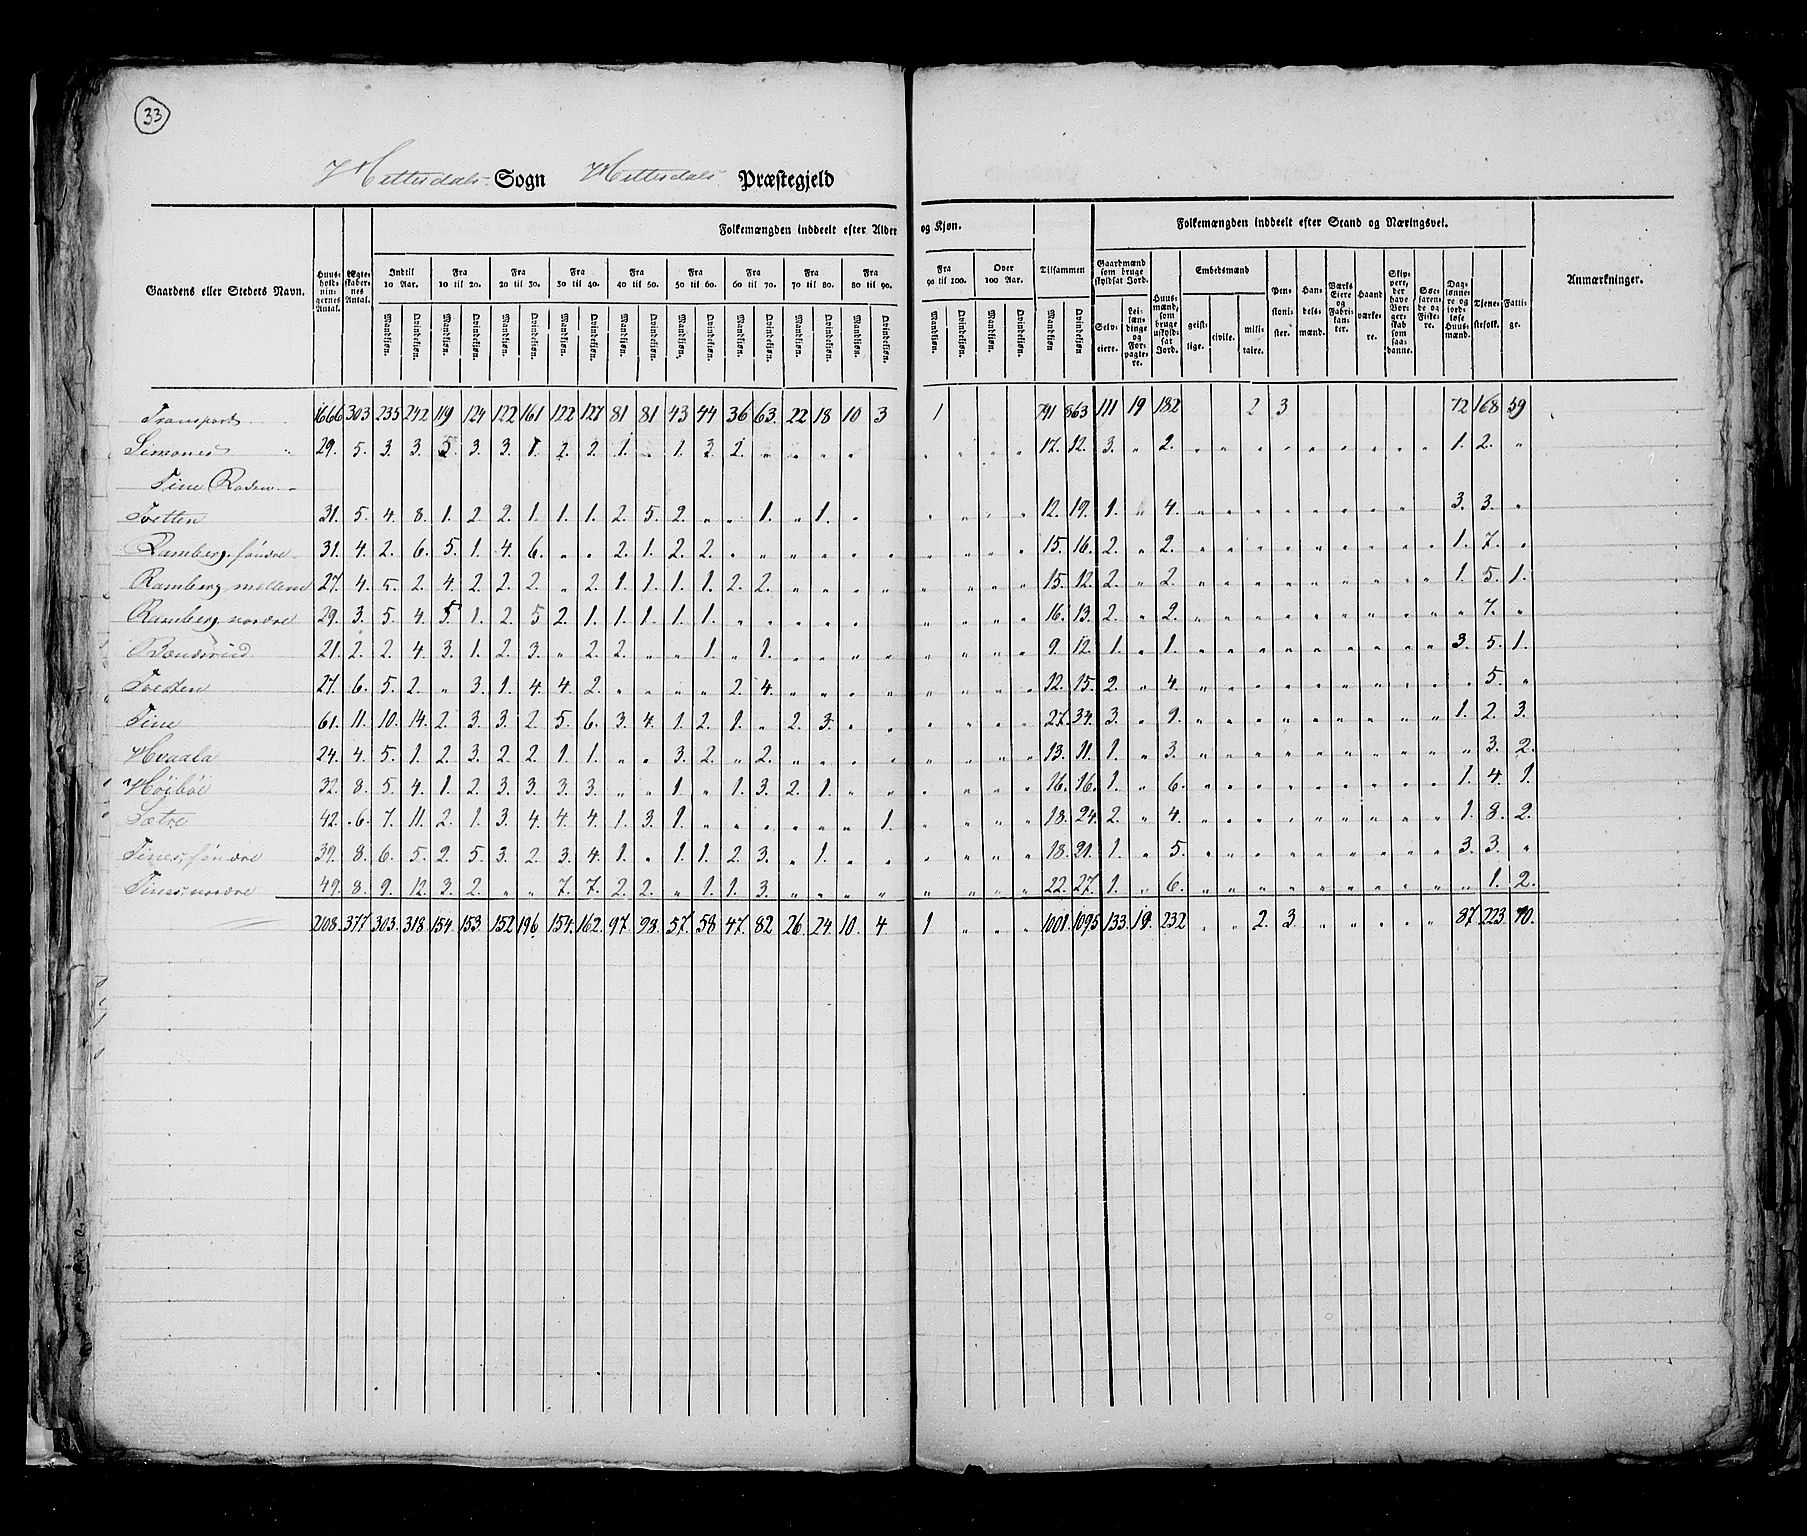 33
Hitterdals Sogn Hitterdals Præstegjeld
Folkemængden inddeelt efter Alder og Kjøn. Folkemængden inddeelt efter Stand og Næringsvei.
Gaardens eller Stedets Navn. Huus-holdnin-gernes Antal. Ægte-skaber-nes Antal. Indtil 10 Aar. Fra 10 til 20. Fra 20 til 30. Fra 30 til 40. Fra 40 til 50. Fra 50 til 60. Fra 60 til 70. Fra 70 til 80. Fra 80 til 90. Fra 90 til 100. Over 100 Aar. Tilsammen Gaardmænd som bruge skyldsat Jord. Huus-mænd, som bruge uskyld-sat Jord. Embedsmænd Pen-sioni-ster. Han-dels-mænd. Værks Eiere og Fabri-kan-ter. Haand værke-re. Skip-pere, der have Bor-ger-skab som saa-danne. Søe-faren-de og Fiske-re. Dag-lønne-re og jord-løse Huus-mænd. Tjene-stefolk. Fatti-ge. Anmærkninger.
Mandkjøn. Qvindekjøn. Selv-eiere. Lei-læn-dinge og For-pagte-re. geist-lige. civile. mili-taire.
Transport 1666 303 235 242 119 124 122 161 122 127 81 81 43 44 36 63. 22 18 10 3 1 791 863 111 19 182 2 3 72 168 59
Simones 29. 5. 3. 3. 5. 3. 3. 1. 2. 2. 1. " 1. 3. 2. " " " " " " " " " 17. 12. 3. " 2. " " " " " " " " " 1. 2. "
Tine Roden
Tvetten 31. 5. 4. 8. 1. 2 2. 1. 1. 1. 2. 5. 2. " " 1. " 1. " " " " " " 12. 19. 1. " 4. " " " " " " " " " 3. 3. "
Ramberg søndre 31. 4. 2. 6. 5. 1. 4. 6. " " 2. 1. 2. 2. " " " " " " " " " " 15. 16. 2. " 2. " " " " " " " " " 1. 7. "
Ramberg mellem 27. 4. 5. 2. 4. 2. 2. 2. " 2. 1. 1. 1. 1. 2. 2. " " " " " " " " 15. 12. 2. " 2. " " " " " " " " " 1. 5. 1.
Ramberg nordre 29. 3. 5. 4. 5. 1. 2. 5 2. 1. 1. 1. 1. 1. " " " " " " " " " " 16. 13. 2. " 2. " " " " " " " " " " 7. "
21. 2. 2. 4. 3. 1. 2. 3. " 2. 2. " " 1. " 1. " " " " " " " " 9. 12. 1. " 1. " " " " " " " " " 3. 5. 1.
27. 6. 5. 2. " 3. 1. 4. 4. 2. " " " " 2. 4. " " " " " " " " 12. 15. 2. " 4. " " " " " " " " " " 5. "
Tine 61. 11. 10. 14. 2. 3. 3. 2. 5. 6. 3. 4. 1. 2. 1. " 2. 3. " " " " " " 27. 34. 3. " 9. " " " " " " " " " 1. 2. 3.
Hvaala 24. 4. 5. 1. 2. 3. 2. 2. 1. 1. " " 3. 2. " 2. " " " " " " " " 13. 11. 1. " 3. " " " " " " " " " " 3. 2.
Høibøe 32. 8. 5. 4. 1. 2. 3. 3. 3. 3. " " 1. " 1. 3. 2. 1. " " " " " " 16. 16. 1. " 6. " " " " " " " " " 1. 4. 1.
Sætre 42. 6. 7. 11. 2. 1. 3. 4. 4. 4. 1. 3. 1. " " " " " " 1. " " " " 18. 24. 2. " 4. " " " " " " " " " 1. 8. 2.
Tines søndre 39. 8. 6. 5. 2. 5. 3. 2. 3. 4. 1. " 1. 1. 2. 3. " 1. " " " " " " 18. 21. 1. " 5. " " " " " " " " " 3. 3. "
Tines nordre 49. 8. 9. 12. 3. 2. " " 7. 7. 2. 2. " 1. 1. 3. " " " " " " " " 22. 27. 1. " 6. " " " " " " " " " " 1. 2.
2108. 377 303. 318. 154. 153. 152 196. 154. 162. 97. 98. 57. 58 47. 82 26. 24. 10. 4 1 " " " 1001. 1095 133. 19. 232 " " 2. 3. " " " " " 87 223. 70.